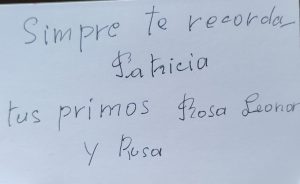 Simpre te recorda
Patricia
tus primos Rosa Leonor
y Rosa